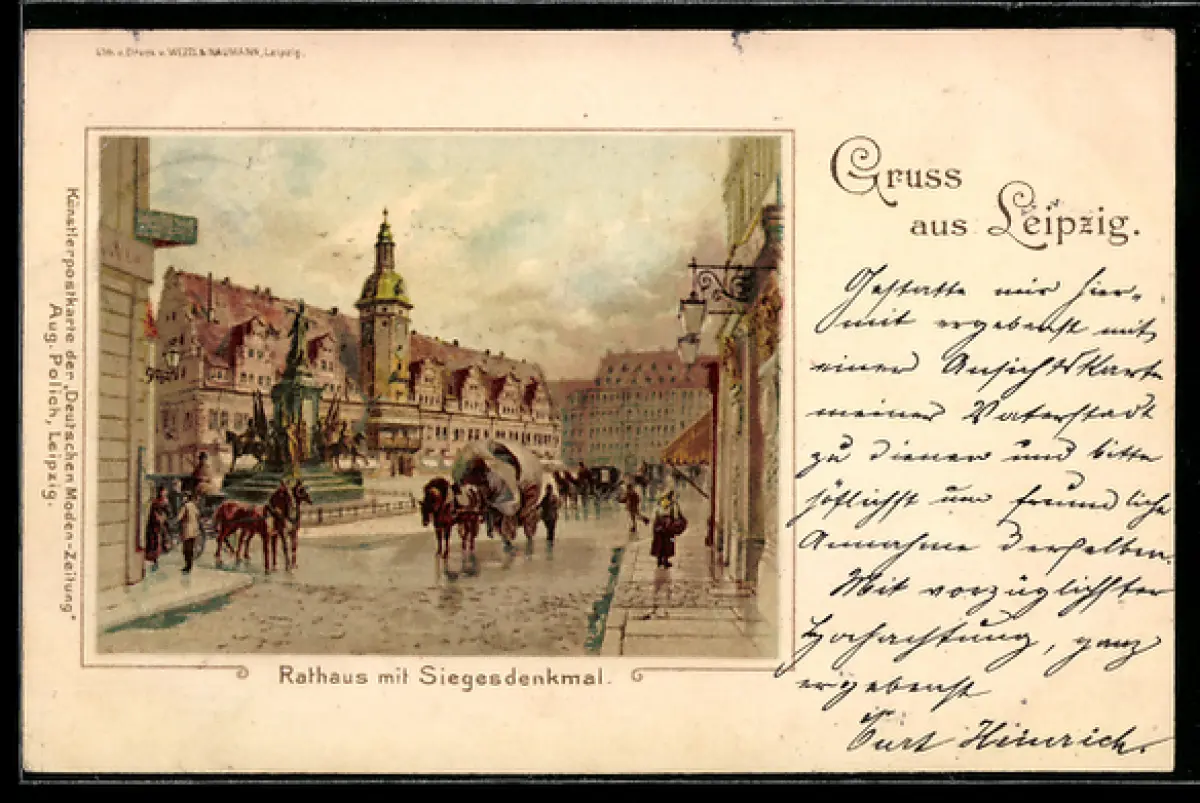 Lith. u. Druck v. WEZEL & NAUMANN, Leipzig.
Künstlerpostkarte der „Deutschen Moden-Zeitung"
Aug. Polich, Leipzig.
Gruss
aus Leipzig.
Gestatte mir hier-
mit ergebenst mit
einer Ansichtskarte
meiner Vaterstadt
zu dienen und bitte
höflichst um freundliche
Annahme derselben.
Mit vorzüglichster
Hochachtung, ganz
ergebenst
Curt Hinrich.
Rathaus mit Siegesdenkmal.